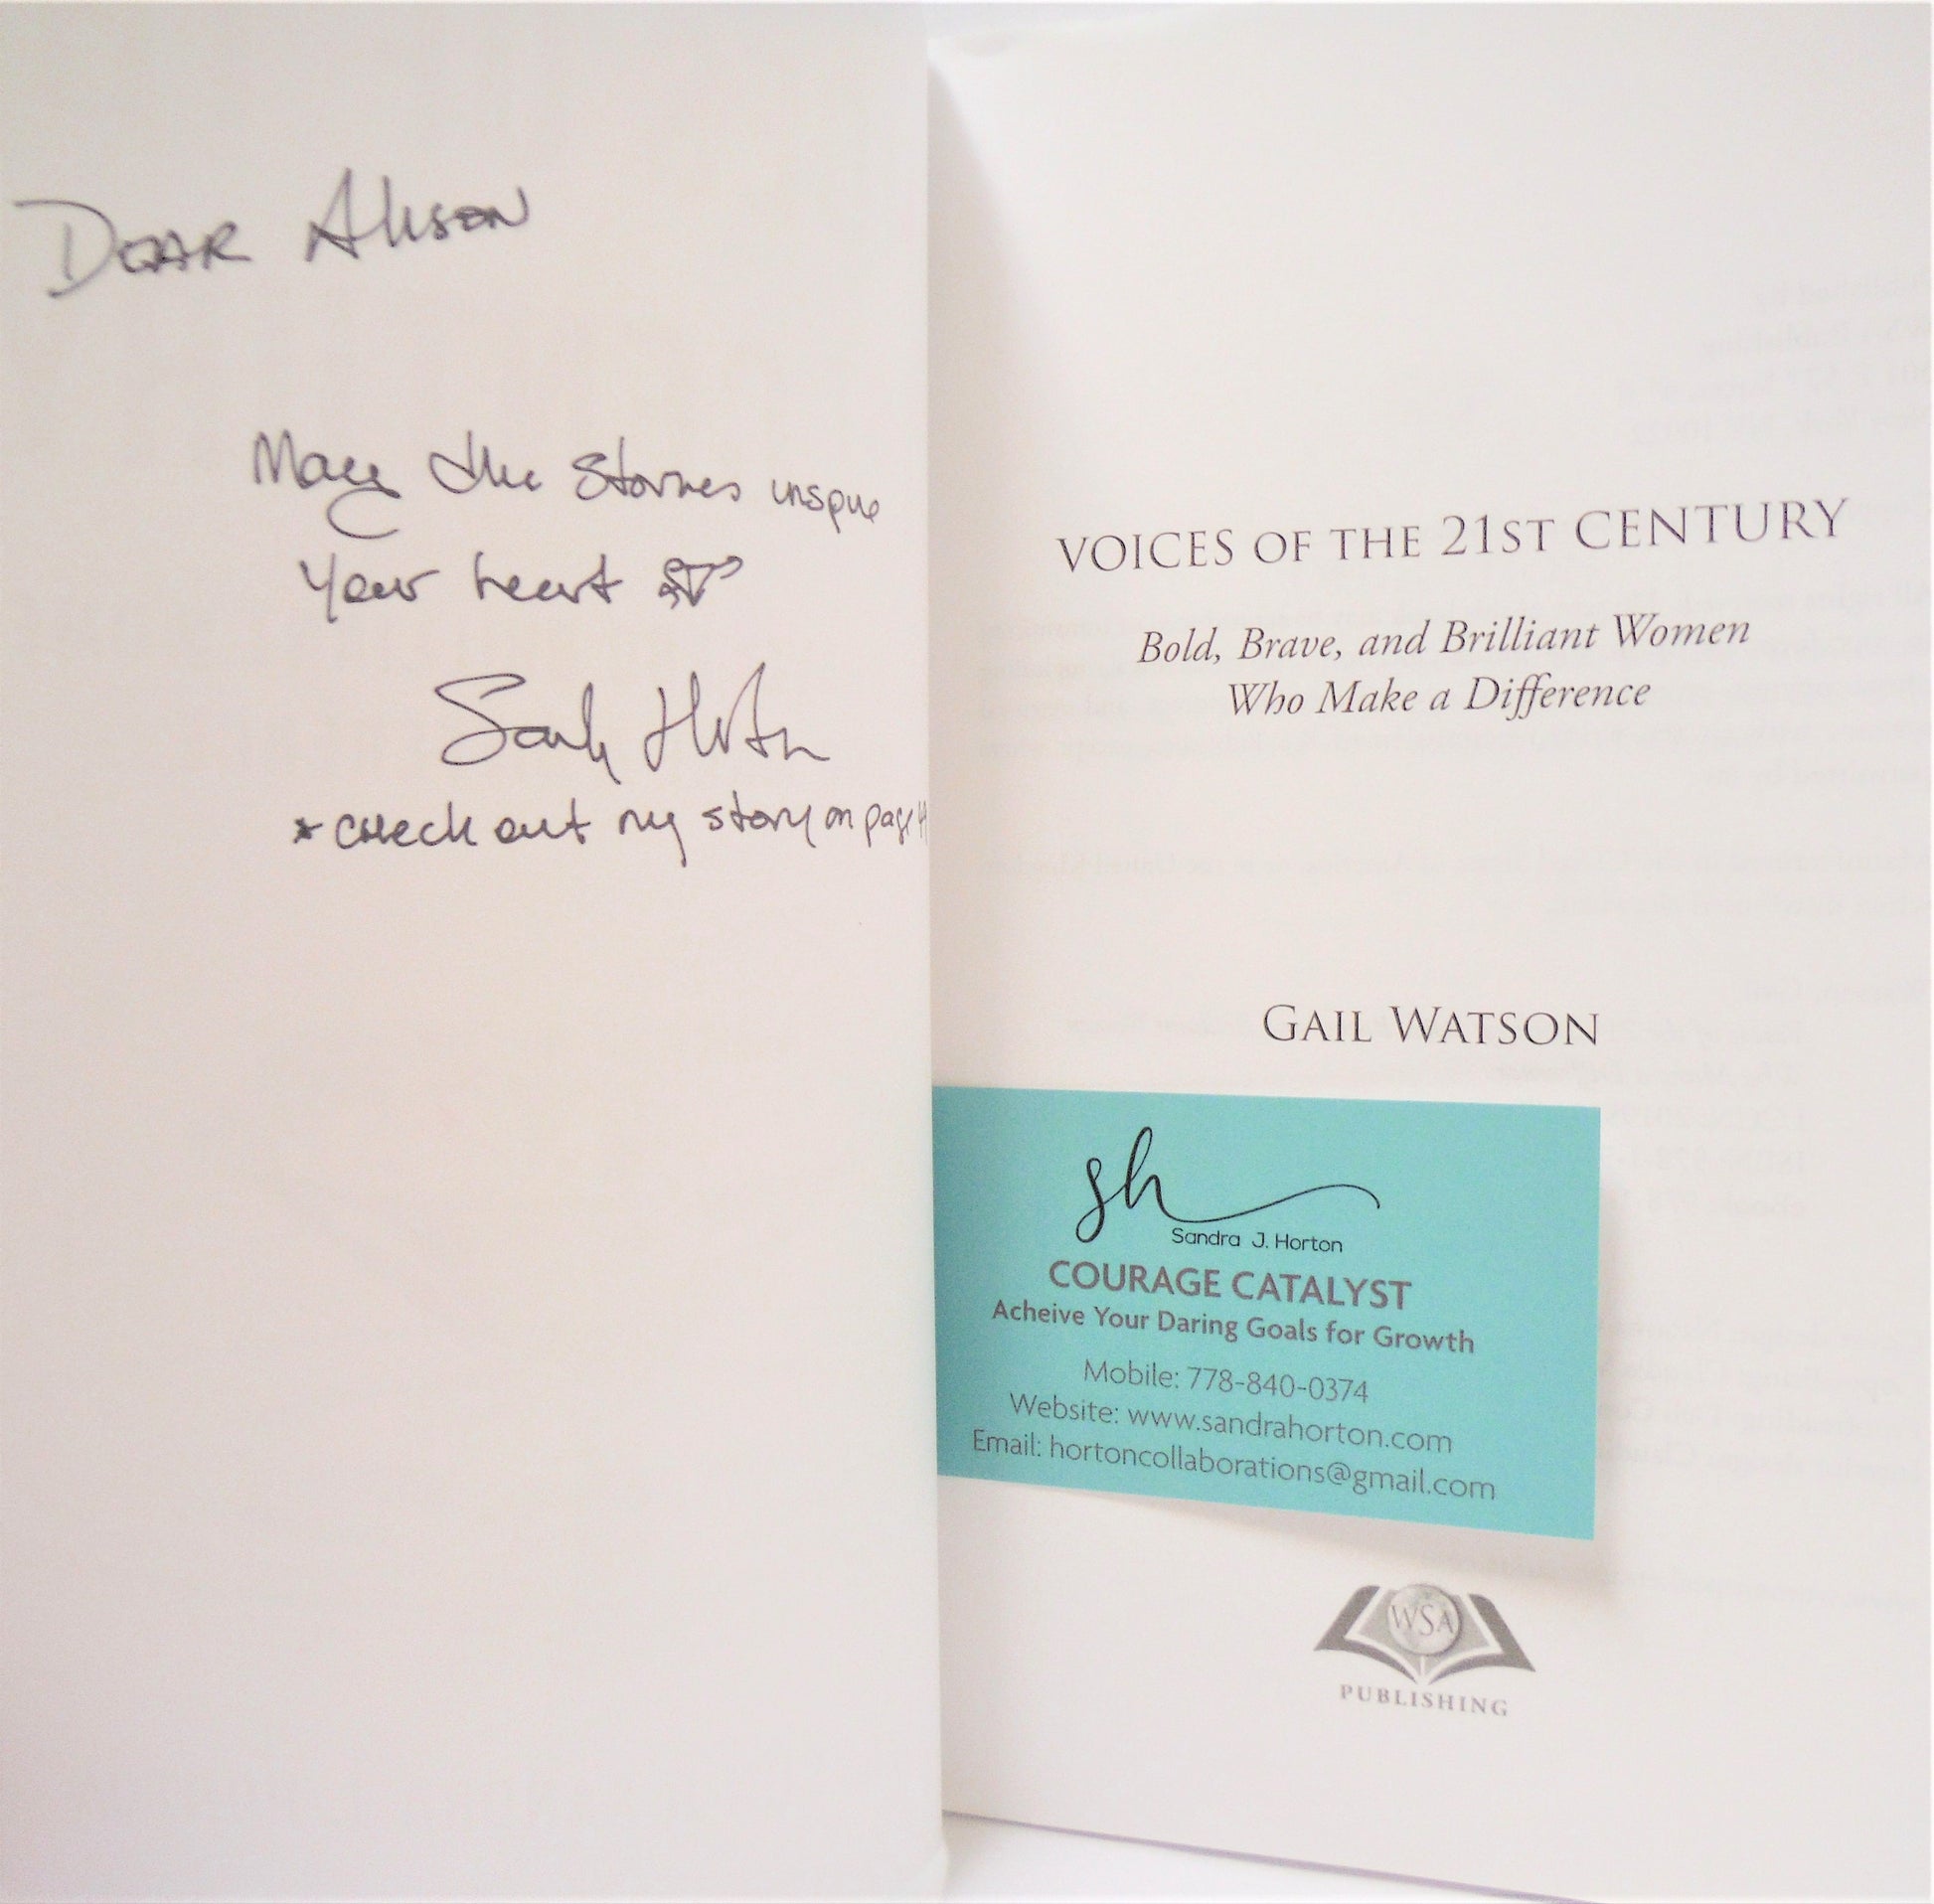 DEAR Alison
May the stories inspire
your heart
*check out my story on page
VOICES OF THE 21ST CENTURY
Bold, Brave, and Brilliant Women
Who Make a Difference
GAIL WATSON
sh
Sandra J. Horton
COURAGE CATALYST
Acheive Your Daring Goals for Growth
Mobile: 778-840-0374
Website: www.sandrahorton.com
Email: hortoncollaborations@gmail.com
WSA
PUBLISHING